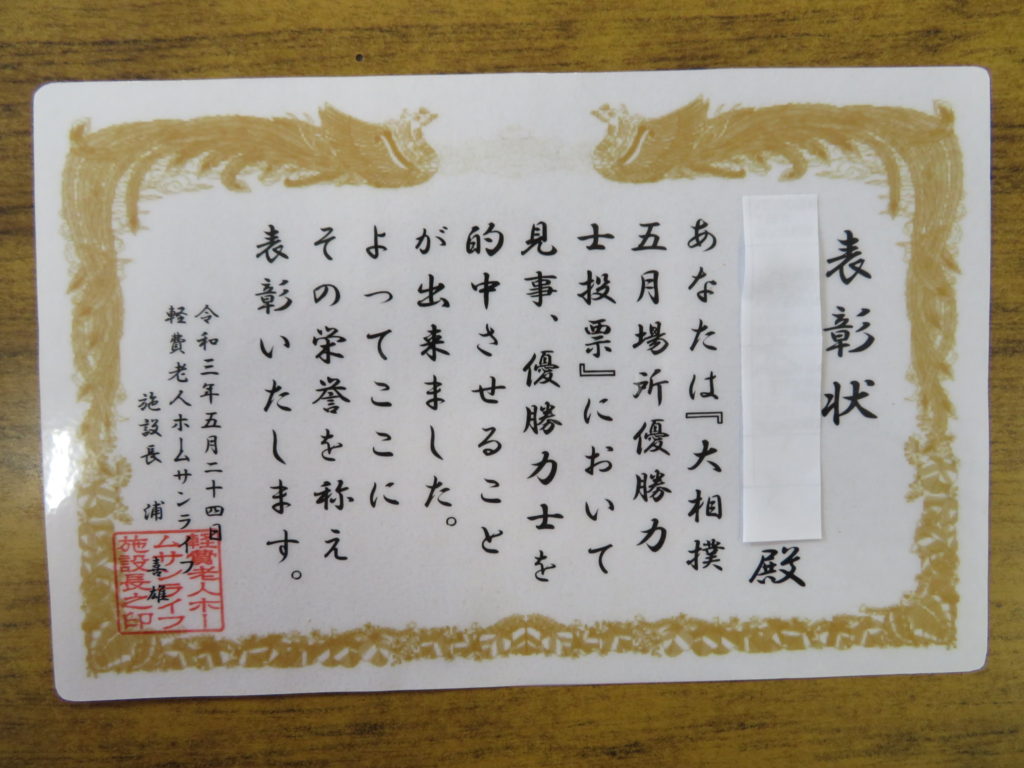 表彰状
殿
あなたは『大相撲
五月場所優勝力
士投票』において
見事、優勝力士を
的中させること
が出来ました。
よってここに
その栄誉を称え
表彰いたします。
令和三年五月二十四日
軽費老人ホームサンライフ
施設長 浦 喜雄
軽費老人ホー
ムサンライフ
施設長之印